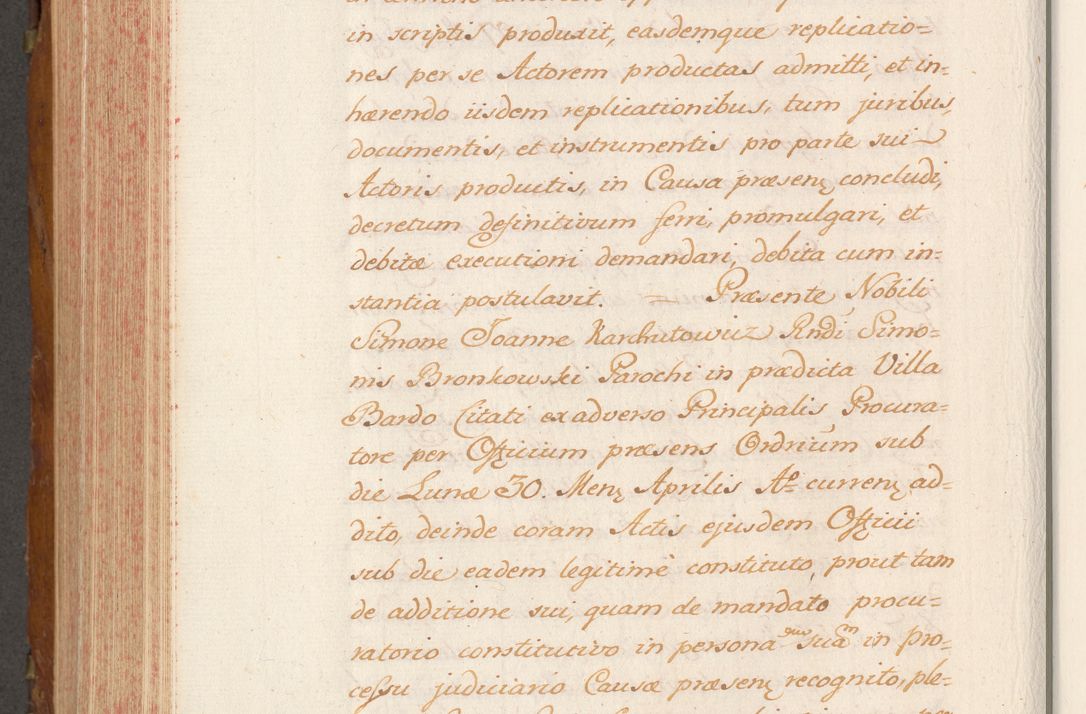 in scriptis produxit, easdemque replicatio=
nes per se Actorem productas admitti, et in=
hærendo iisdem replicationibus, tum juribus,
documentis, et instrumentis pro parte sui
Actoris productis, in Causa præsenę concludi,
decretum definitivum ferri, promulgari, et
debitæ executioni demandari, debita cum in=
stantia postulavit. — Præsente Nobili
Simone Joanne Karchutowicz Rndi Simo=
nis Bronkowski Parochi in prædicta Villa
Bardo Citati ex adverso Principalis Procura=
tore per Officium præsens Ordrium sub
die Lunæ 30. Menę Aprilis Aº currenę ad=
dito, deinde coram Actis ejusdem Officii
sub die eadem legitimè constituto, prout tam
de additione sui, quam de mandato procu=
ratorio constitutivo in persona suam in pro=
cessu judiciario Causæ præsenę recognito, ple=